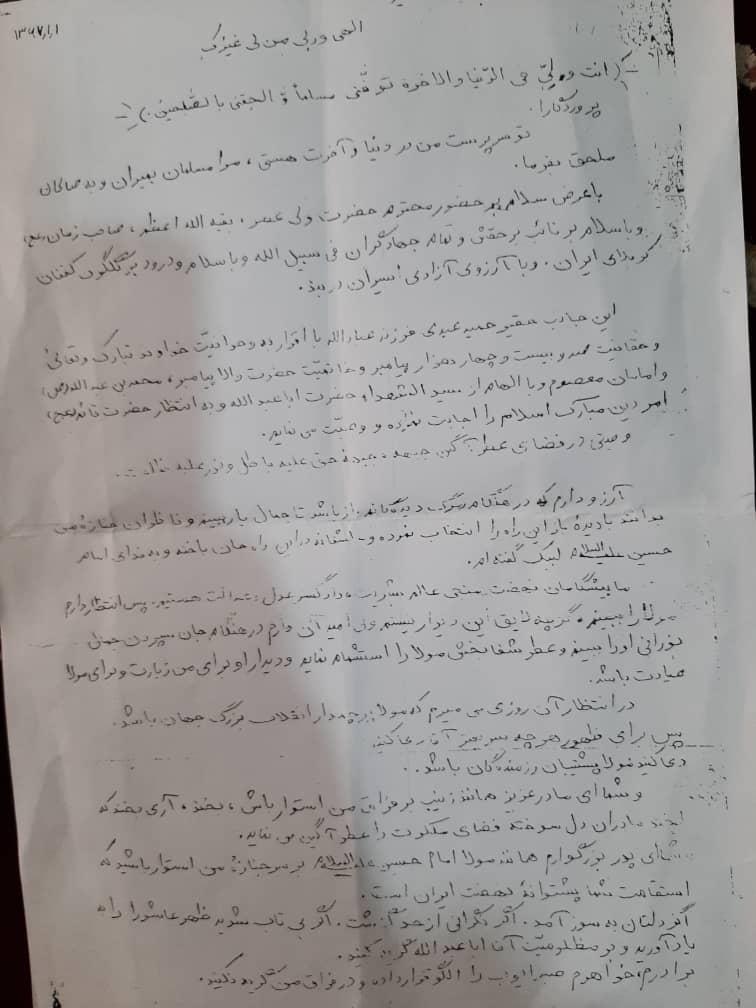 ۱۳۶۷/۱/۱
الهی و ربی من لی غیرک
(انت ولیّ فی الدّنیا والاخرة توفّنی مسلماً و الحقنی بالصّلحین.)
پروردگارا.
تو سرپرست من در دنیا و آخرت هستی، مرا مسلمان بمیران و به صالحان
ملحق بفرما.
با عرض سلام بر حضور محترم حضرت ولی عصر، بقیه الله اعظم، صاحب زمان (عج)
و با سلام بر نائب بر حقش و تمام جهادگران فی سبیل الله و با سلام و درود بر گلگون کفنان
کربلای ایران. و با آرزوی آزادی اسیران دربند.
این جانب حقیر حمید عبدی فرزند عبادالله با اقرار به وحدانیّت خداوند تبارک و تعالیٰ
و حقانیت صد و بیست و چهار هزار پیامبر و خاتمیّت حضرت والا پیامبر، محمد بن عبدالله (ص)
و امامان معصوم و با الهام از سید الشهداء حضرت ابا عبد الله و به انتظار حضرت قائم (عج)
امر دین مبارک اسلام را اجابت نموده و وصیّت می نمایم.
وصیتی در فضای عطرآگین جبهه، جبهۀ حق علیه باطل و نور علیه
آرزو دارم که در هنگام مرگ دیدگانم باز باشد تا جمال یار ببینم و ناظران جنازۀ من
بدانند با دیدۀ باز این راه را انتخاب نموده و در این راه جان باخته و به ندای امام
حسین علیه السلام لبیک گفته ام.
ما پیشگامان نهضت عالم بشریت، دادگستر عدل و هستیم. پس انتظار دارم
مولا را ببینم، گرچه لایق این دیدار نیستم ولی امید آن دارم در هنگام جان سپردن جمال
نورانی او را ببینم و عطر شفابخش مولا را استشمام نمایم و دیدار او برای من زیارت و برای مولا
عیادت باشد.
در انتظار آن روزی می میرم که مولا پرچمدار انقلاب بزرگ جهان باشد.
پس برای ظهور هر چه سریعتر آقا دعا کنید.
دعا کنید مولا پشتیبان رزمندگان باشد.
و شما ای مادر عزیز همانند زینب بر فراق من استوار باش، بخند، آری بخند که
لبخند مادران دل سوخته فضای ملکوت را عطرآگین می نماید.
شمای پدر بزرگوارم همانند مولا امام حسین علیه السلام بر سر جنازۀ من استوار باشید که
استقامت شما پشتوانۀ نهضت ایران است.
اگر دلتان به سوز آمد. اگر نگرانی از حد گذشت. اگر بی تاب شدید ظهر عاشورا را به
یاد آورید و بر مظلومیّت آقا ابا عبد الله گریه کنید.
برادرم، خواهرم صبر ایوب را الگو قرار داده و در فراق من گریه نکنید.